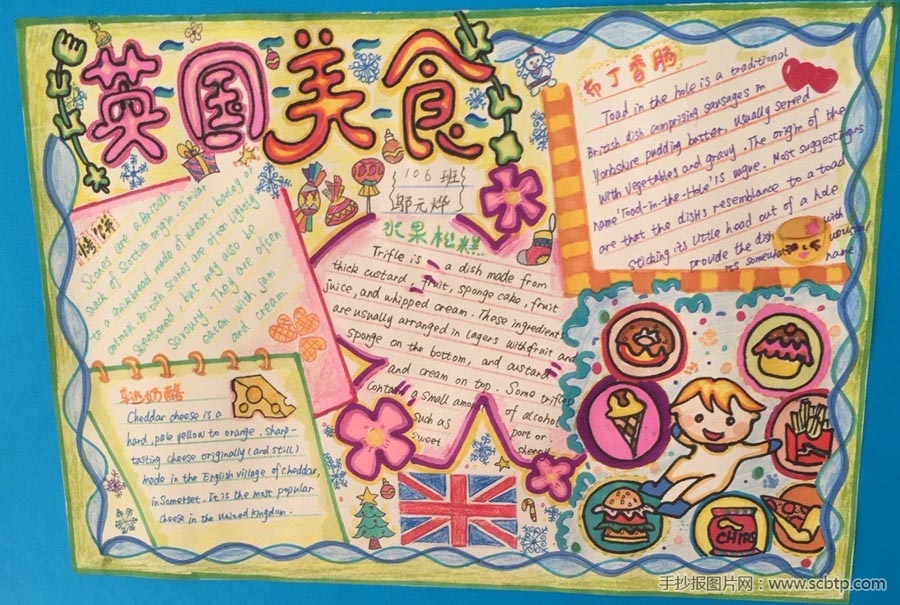 英国美食
106班
邬元烨
布丁香肠
Toad in the hole is a traditional
British dish comprising sausages in
Yorkshire pudding batter. Usually served
with vegetables and gravy. The origin of the
name 'Toad-in-the-Hole' is vague. Most suggestions
are that the dish's resemblance to a toad
sticking its little head out of a hole
provide the dish with
its somewhat unusual
name
Scones are a British
snack of Scottish origin. Similar
to a made of wheat, barley or
oatmeal. British scones are often lightly
sweetened, but may also be
savoury. They are often
eaten with jam
and cream.
水果松糕
Trifle is a dish made from
thick custard, fruit, sponge cake, fruit
juice, and whipped cream. These ingredients
are usually arranged in layers with fruit and
sponge on the bottom, and custard
and cream on top. Some trifles
contain a small amount of alcohol
such as port or
sweet sherry
奶酪
Cheddar cheese is a
hard, pale yellow to orange, sharp-
tasting cheese originally (and still)
made in the English village of cheddar,
in Somerset. It is the most popular
cheese in the United Kingdom.
CHIPS
手抄报图片网：www.scbtp.com